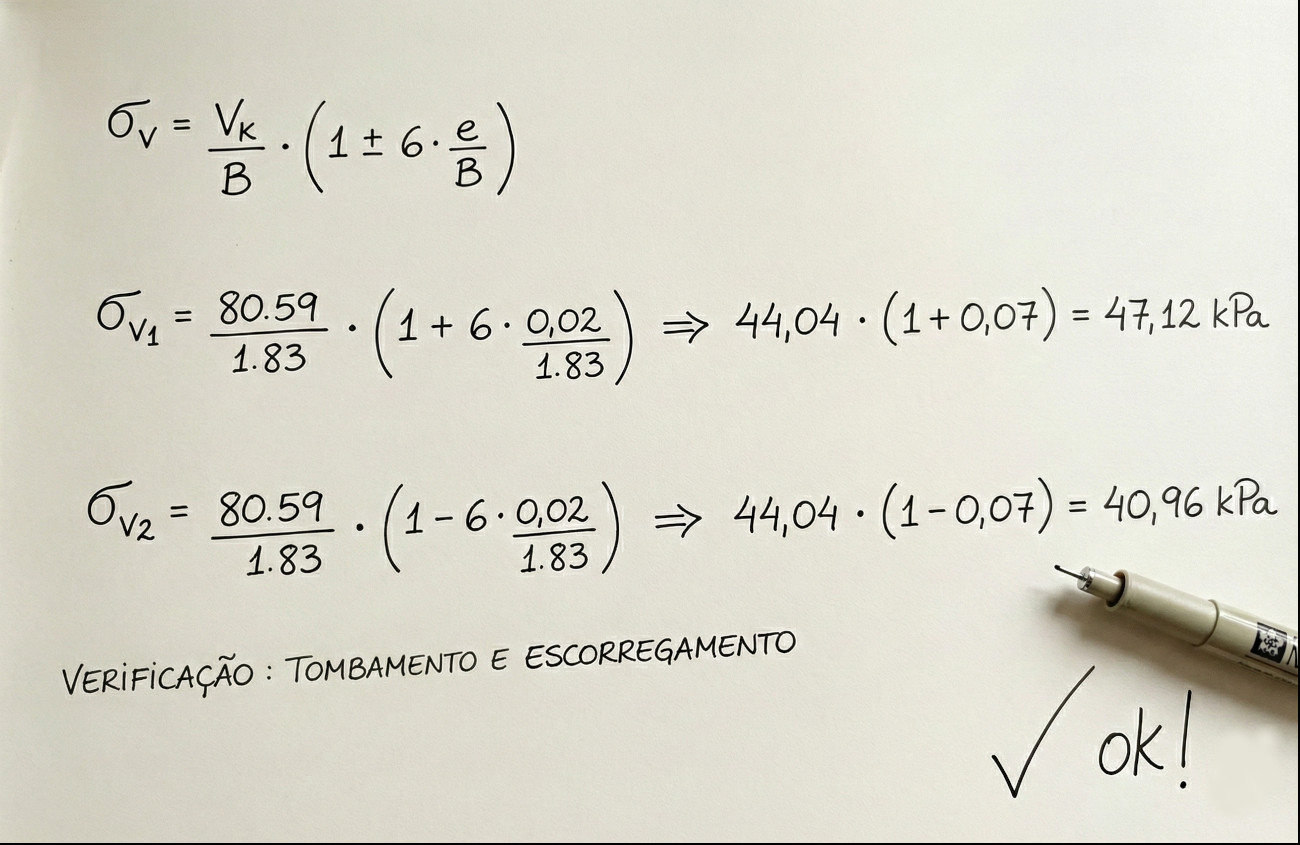 σ_V = V_K / B · (1 ± 6 · e / B)
σ_V1 = 80.59 / 1.83 · (1 + 6 · 0,02 / 1.83) ⇒ 44,04 · (1 + 0,07) = 47,12 kPa
σ_V2 = 80.59 / 1.83 · (1 - 6 · 0,02 / 1.83) ⇒ 44,04 · (1 - 0,07) = 40,96 kPa
VERIFICAÇÃO : TOMBAMENTO E ESCORREGAMENTO
✓ ok!